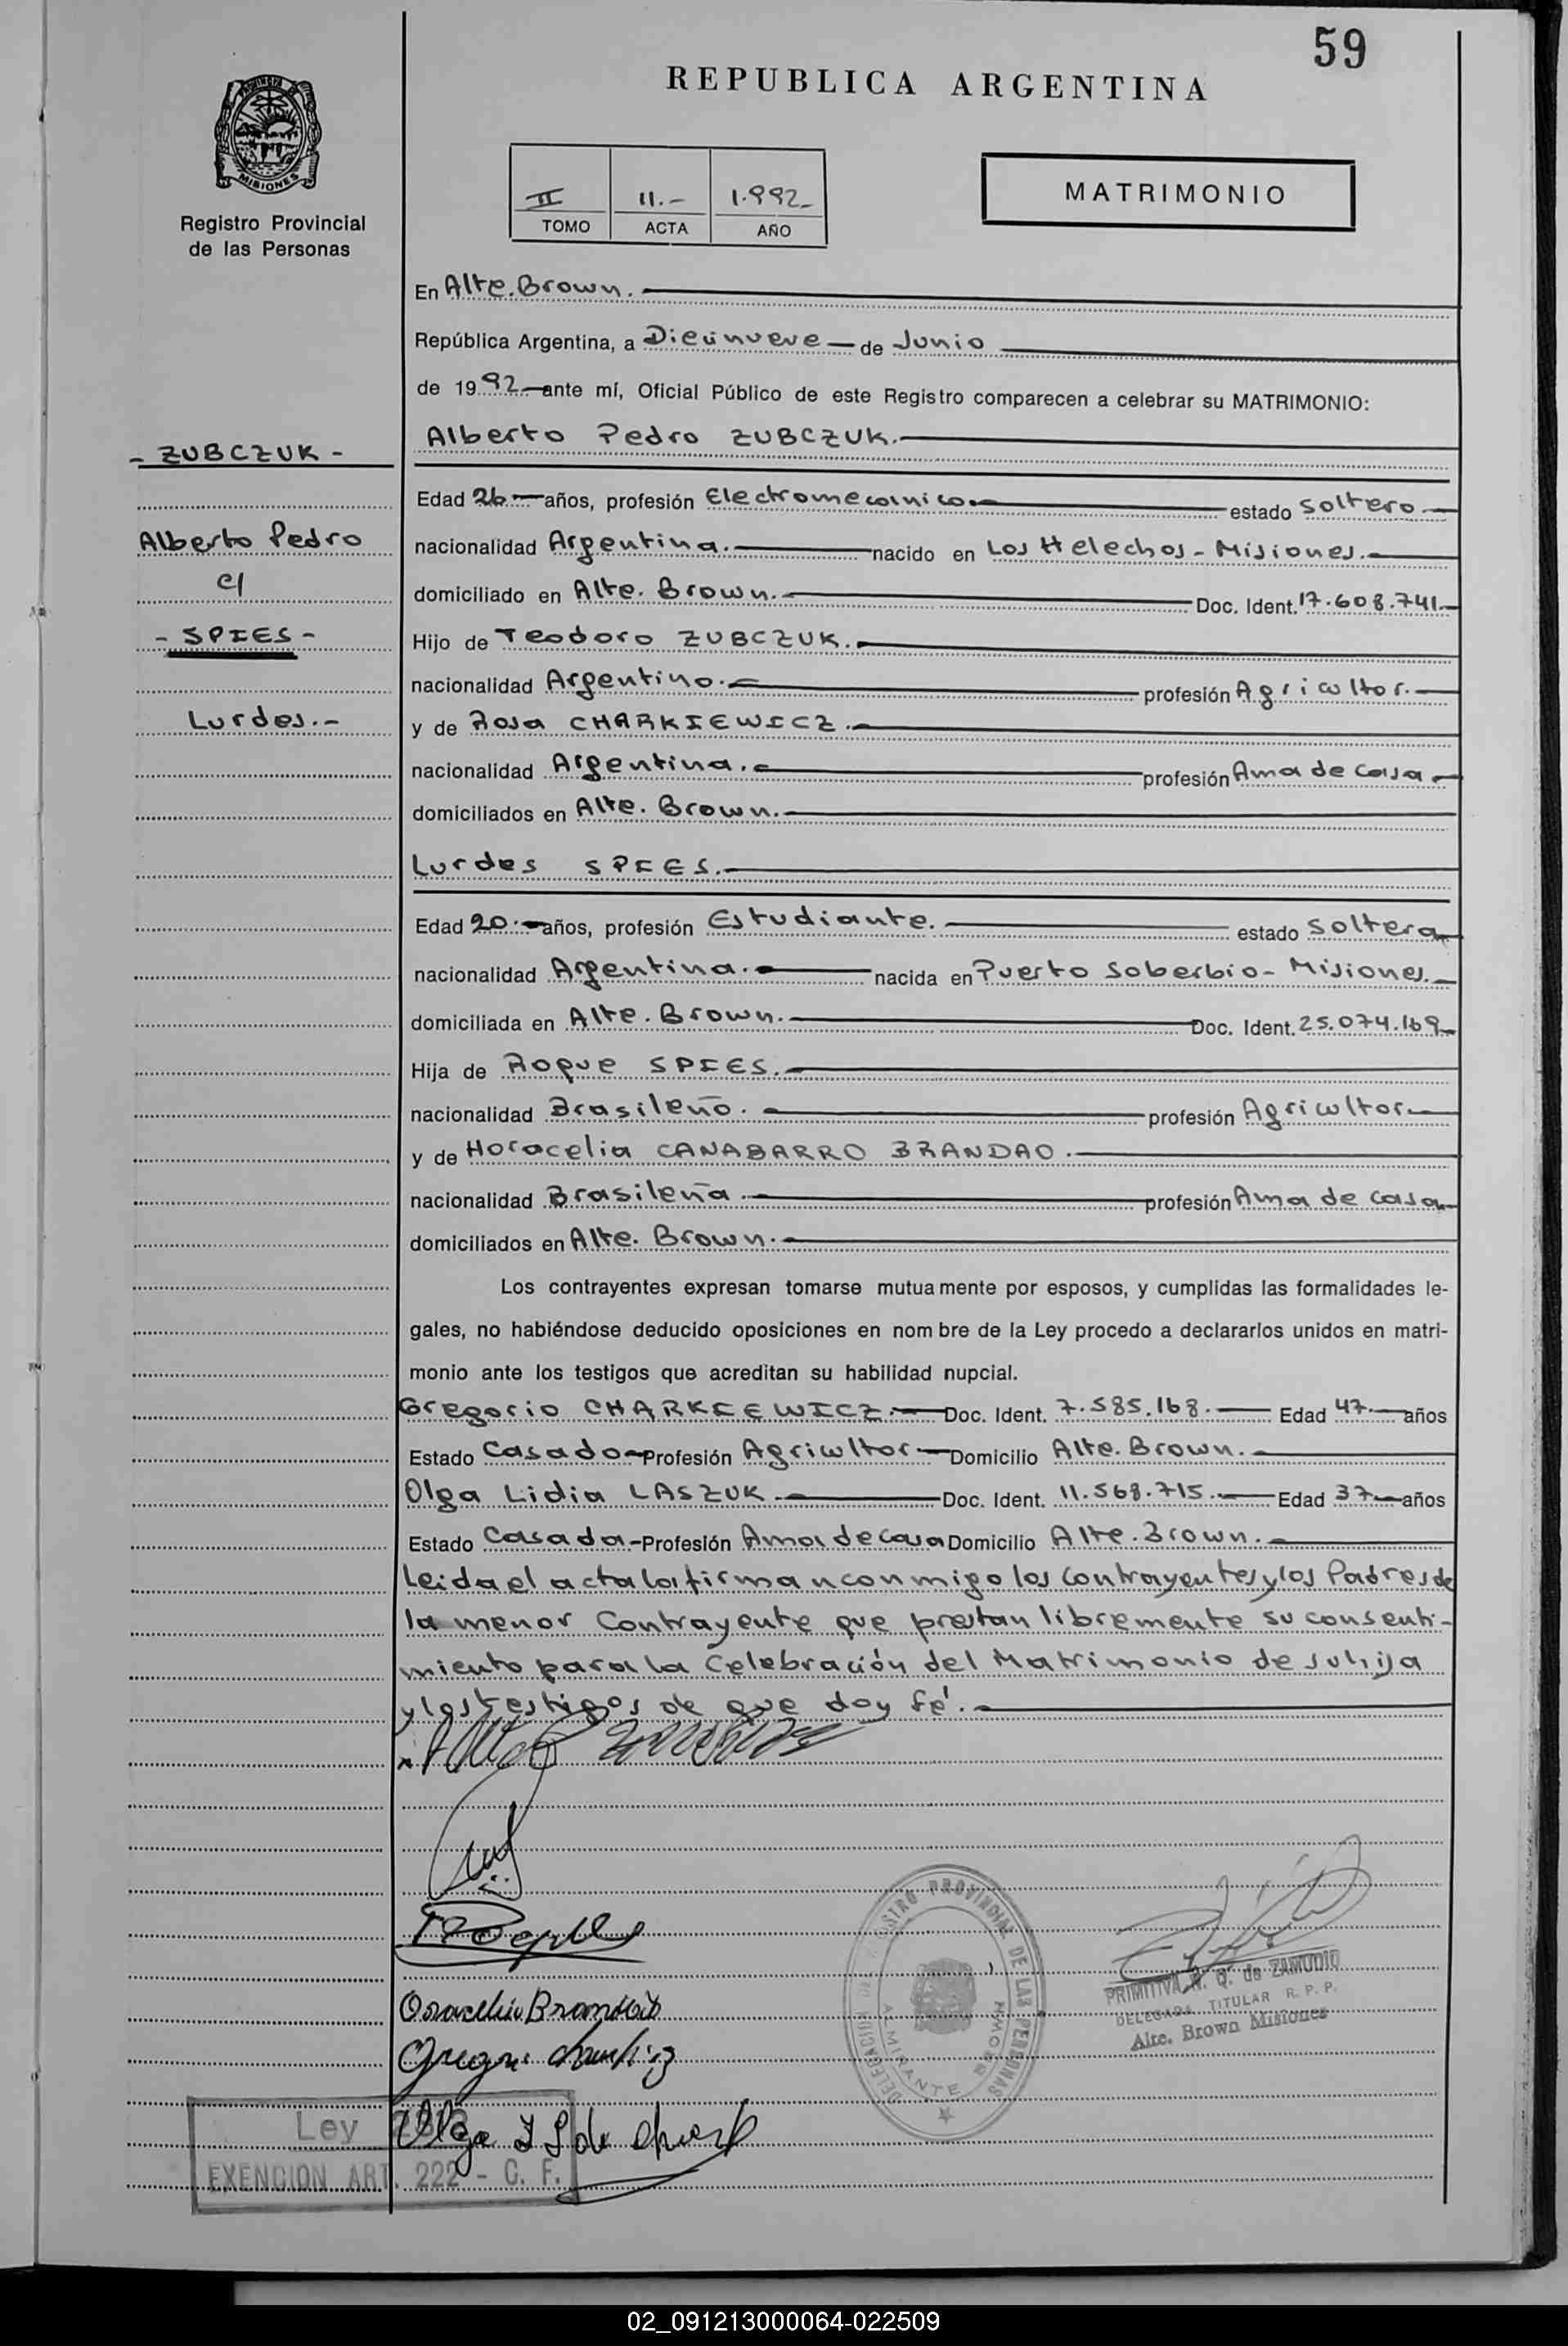 59
REPUBLICA ARGENTINA
MISIONES
Registro Provincial
de las Personas
II 11.- 1.992-
TOMO ACTA AÑO
MATRIMONIO
En Alte. Brown.
República Argentina, a Diecinueve de Junio
de 1992 ante mí, Oficial Público de este Registro comparecen a celebrar su MATRIMONIO:
- ZUBCZUK -
Alberto Pedro
c/
- SPIES -
Lurdes.-
Alberto Pedro ZUBCZUK.
Edad 26 años, profesión Electromecanico estado soltero
nacionalidad Argentina. nacido en Los Helechos - Misiones.
domiciliado en Alte. Brown. Doc. Ident. 17.608.741
Hijo de Teodoro ZUBCZUK.
nacionalidad Argentino. profesión Agricultor.
y de Rosa CHARKIEWICZ.
nacionalidad Argentina. profesión Ama de casa
domiciliados en Alte. Brown.
Lurdes SPIES.
Edad 20. años, profesión Estudiante. estado soltera
nacionalidad Argentina. nacida en Puerto Soberbio - Misiones.
domiciliada en Alte. Brown. Doc. Ident. 25.074.169
Hija de Roque SPIES.
nacionalidad Brasileño. profesión Agricultor
y de Horacelia CANABARRO BRANDAO.
nacionalidad Brasileña. profesión Ama de casa
domiciliados en Alte. Brown.
Los contrayentes expresan tomarse mutuamente por esposos, y cumplidas las formalidades le-
gales, no habiéndose deducido oposiciones en nombre de la Ley procedo a declararlos unidos en matri-
monio ante los testigos que acreditan su habilidad nupcial.
Gregorio CHARKIEWICZ. Doc. Ident. 7.585.168. Edad 47. años
Estado Casado Profesión Agricultor Domicilio Alte. Brown.
Olga Lidia LASZUK Doc. Ident. 11.568.715. Edad 37 años
Estado Casada - Profesión Ama de casa Domicilio Alte. Brown.
Leida el acta la firman conmigo los contrayentes y los Padres de
la menor Contrayente que prestan libremente su consenti-
miento para la Celebración del Matrimonio de su hija
y los testigos de que doy fé.
REGISTRO PROVINCIAL DE LAS PERSONAS
DELEGACION
ALMIRANTE BROWN
PRIMITIVA N. Q. de ZAMUDIO
DELEGADA TITULAR R. P. P.
Alte. Brown Misiones
Ley
EXENCION ART. 222 - C. F.
02_091213000064-022509